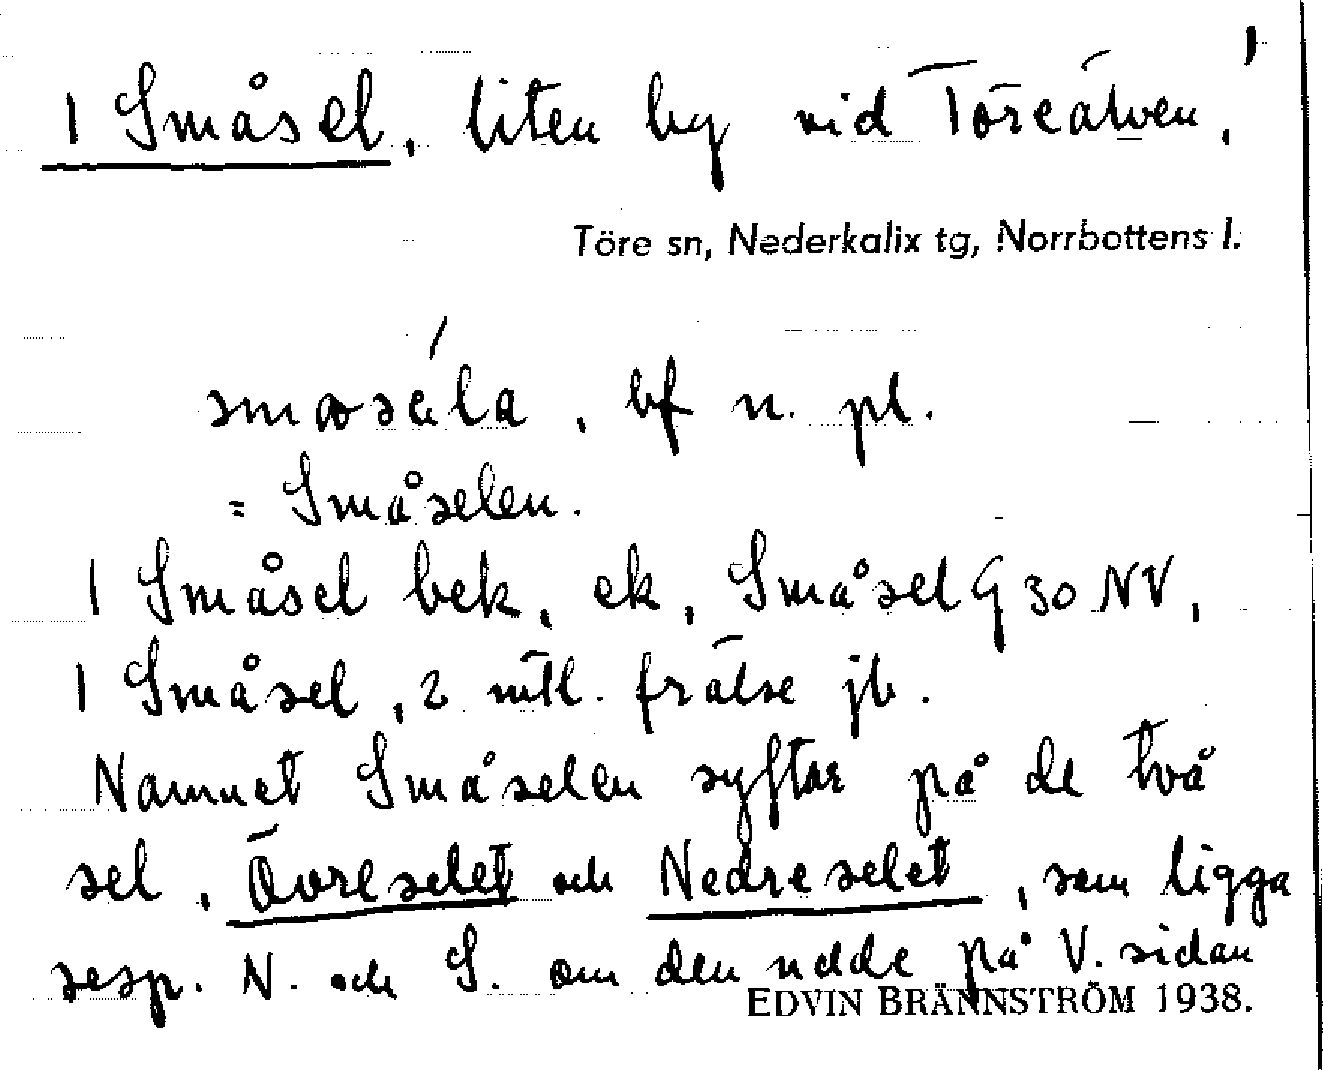 1 Småsel, liten by vid Töreälven,
Töre sn, Nederkalix tg, Norrbottens l.
bf n. pl.
= Småselen.
1 Småsel bek, ek, Småsel G 30 NV,
1 Småsel, 2 mtl. frälse jb.
Namnet Småselen syftar på de två
sel, Övreselet och Nedreselet, som ligga
resp. N. och S. om den udde på V. sidan
EDVIN BRÄNNSTRÖM 1938.